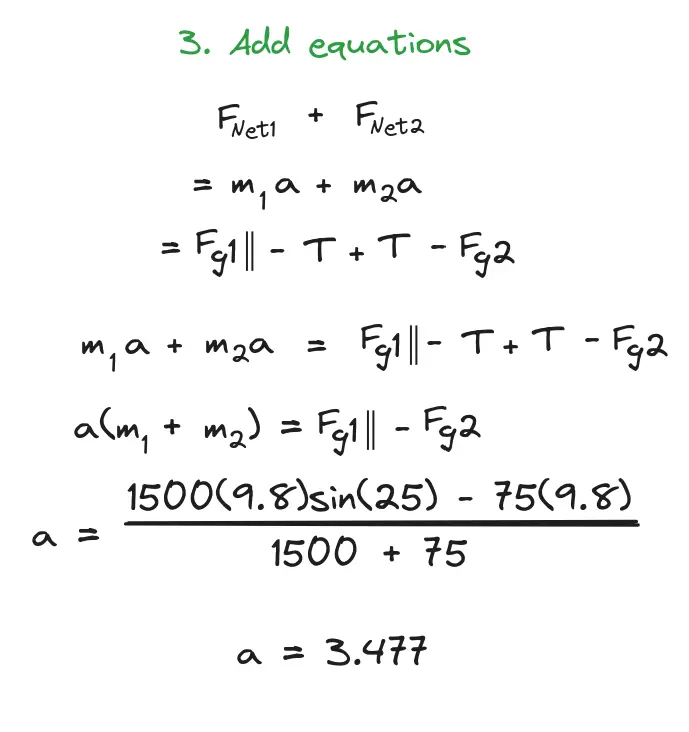 3. Add equations
F_Net1 + F_Net2
= m_1 a + m_2 a
= F_g1∥ - T + T - F_g2
m_1 a + m_2 a = F_g1∥ - T + T - F_g2
a(m_1 + m_2) = F_g1∥ - F_g2
a = \frac{1500(9.8)sin(25) - 75(9.8)}{1500 + 75}
a = 3.477